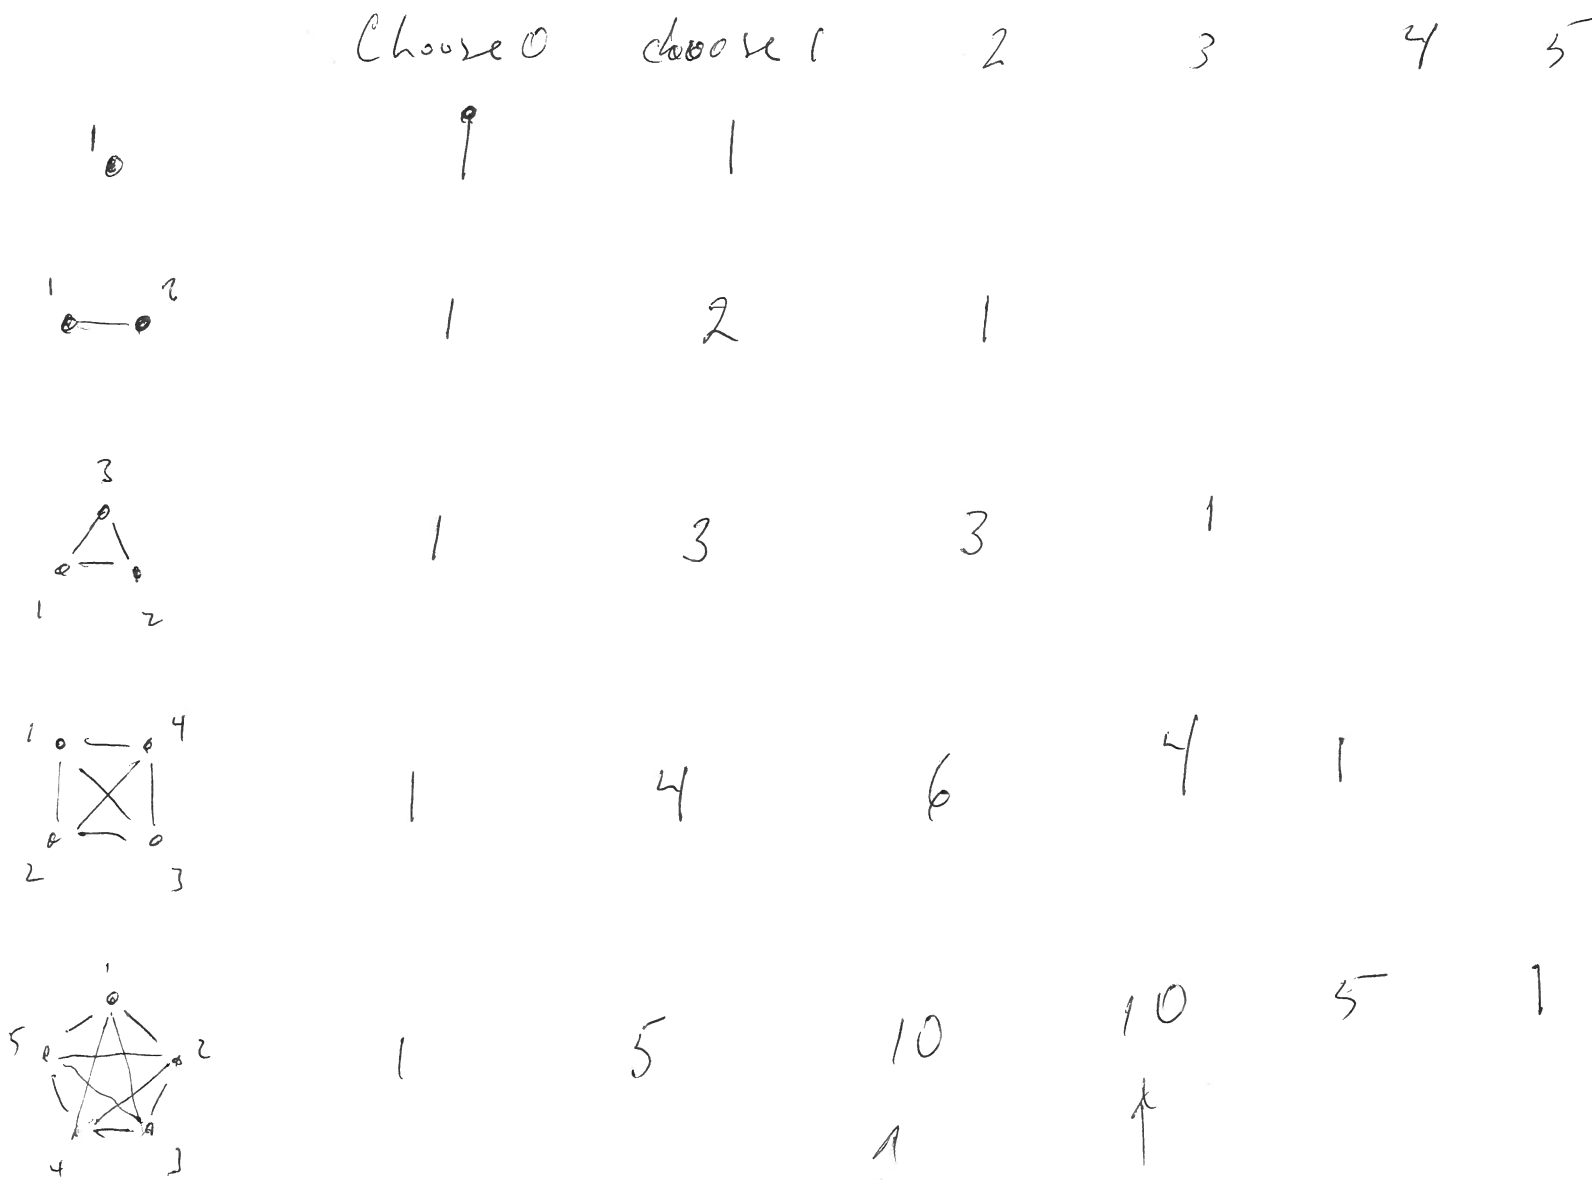 Choose 0 choose 1 2 3 4 5
1 1 1
1 2 1 2 1
3
1 3 3 1
1 2
1 4
1 4 6 4 1
2 3
1
5 2 1 5 10 10 5 1
4 3